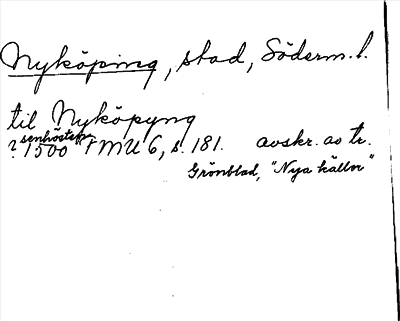 Nyköping, stad, Söderm. l.
til Nyköpyng
? senhösten 1500 FMU 6, s. 181. avskr. av tr.
Grönblad, "Nya källor"